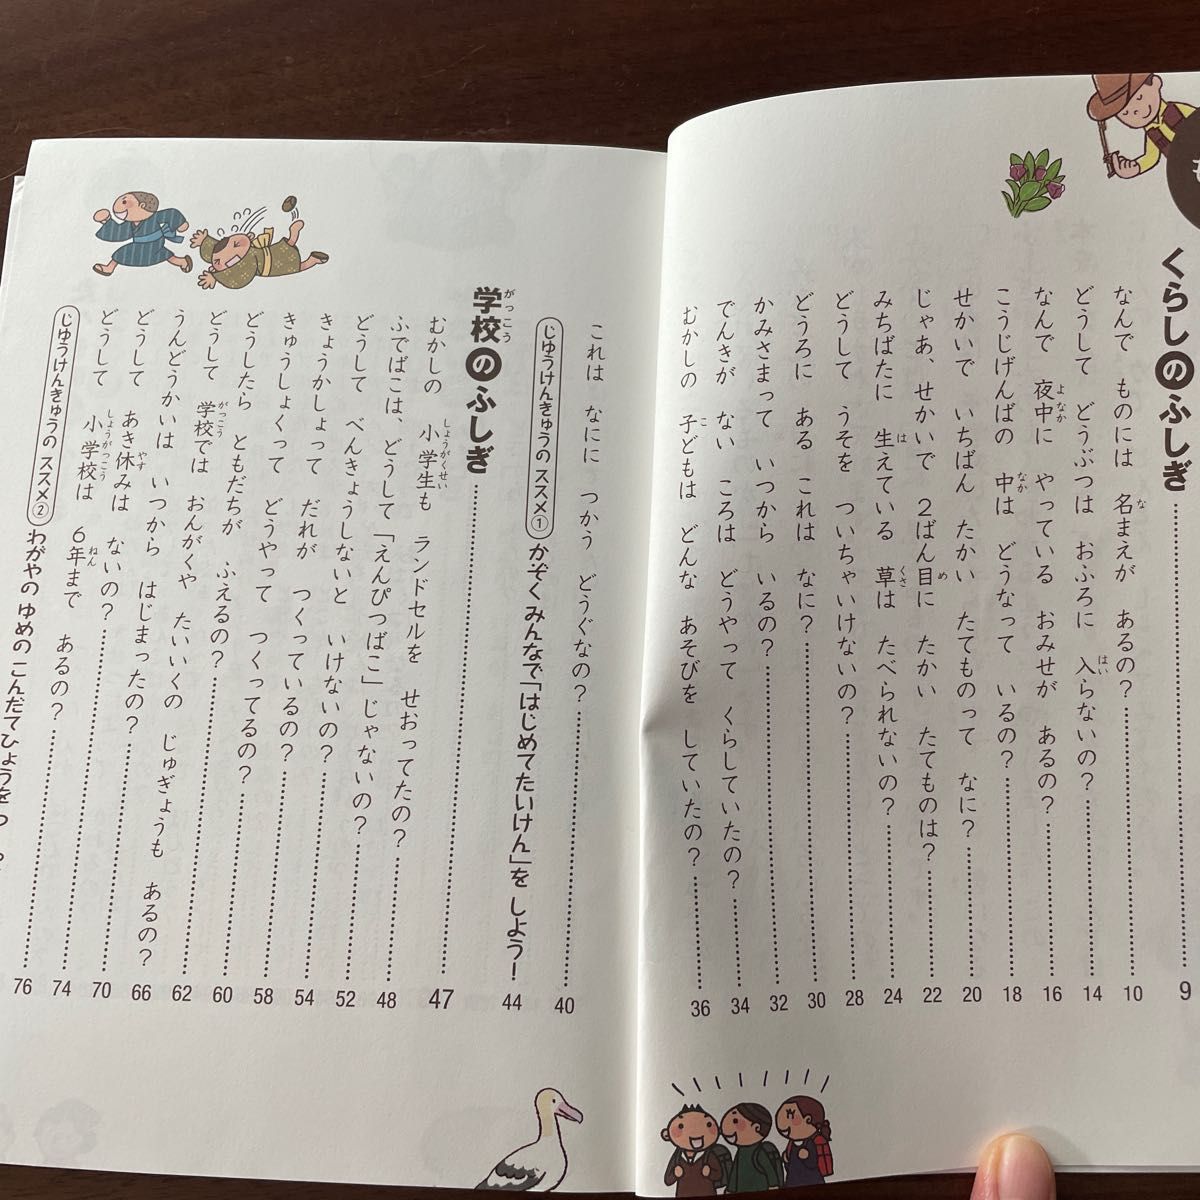 くらしのふしぎ
なんで ものには 名まえが あるの?
どうして どうぶつは おふろに 入らないの?
なんで 夜中に やっている おみせが あるの?
こうじげんばの 中は どうなって いるの?
せかいで いちばん たかい たてものって なに?
じゃあ、せかいで 2ばん目に たかい たてものは?
みちばたに 生えている 草は たべられないの?
どうして うそを ついちゃいけないの?
どうろに ある これは なに?
かみさまって いつから いるの?
でんきが ない ころは どうやって くらしていたの?
むかしの 子どもは どんな あそびを していたの?
36 34 32 30 28 24 22 20 18 16 14 10 9
これは なにに つかう どうぐなの?
じゆうけんきゅうの ススメ① かぞく みんなで「はじめてたいけん」を しよう!
学校のふしぎ
むかしの 小学生も ランドセルを せおってたの?
ふでばこは、どうして「えんぴつばこ」じゃないの?
どうして べんきょうしないと いけないの?
きょうかしょって だれが つくっているの?
きゅうしょくって どうやって つくってるの?
どうしたら ともだちが ふえるの?
どうして 学校では おんがくや たいいくの じゅぎょうも あるの?
うんどうかいは いつから はじまったの?
どうして あき休みは ないの?
どうして 小学校は 6年まで あるの?
じゆうけんきゅうの ススメ② わがやの ゆめの こんだてひょうを
76 74 70 66 62 60 58 54 52 48 47 44 40